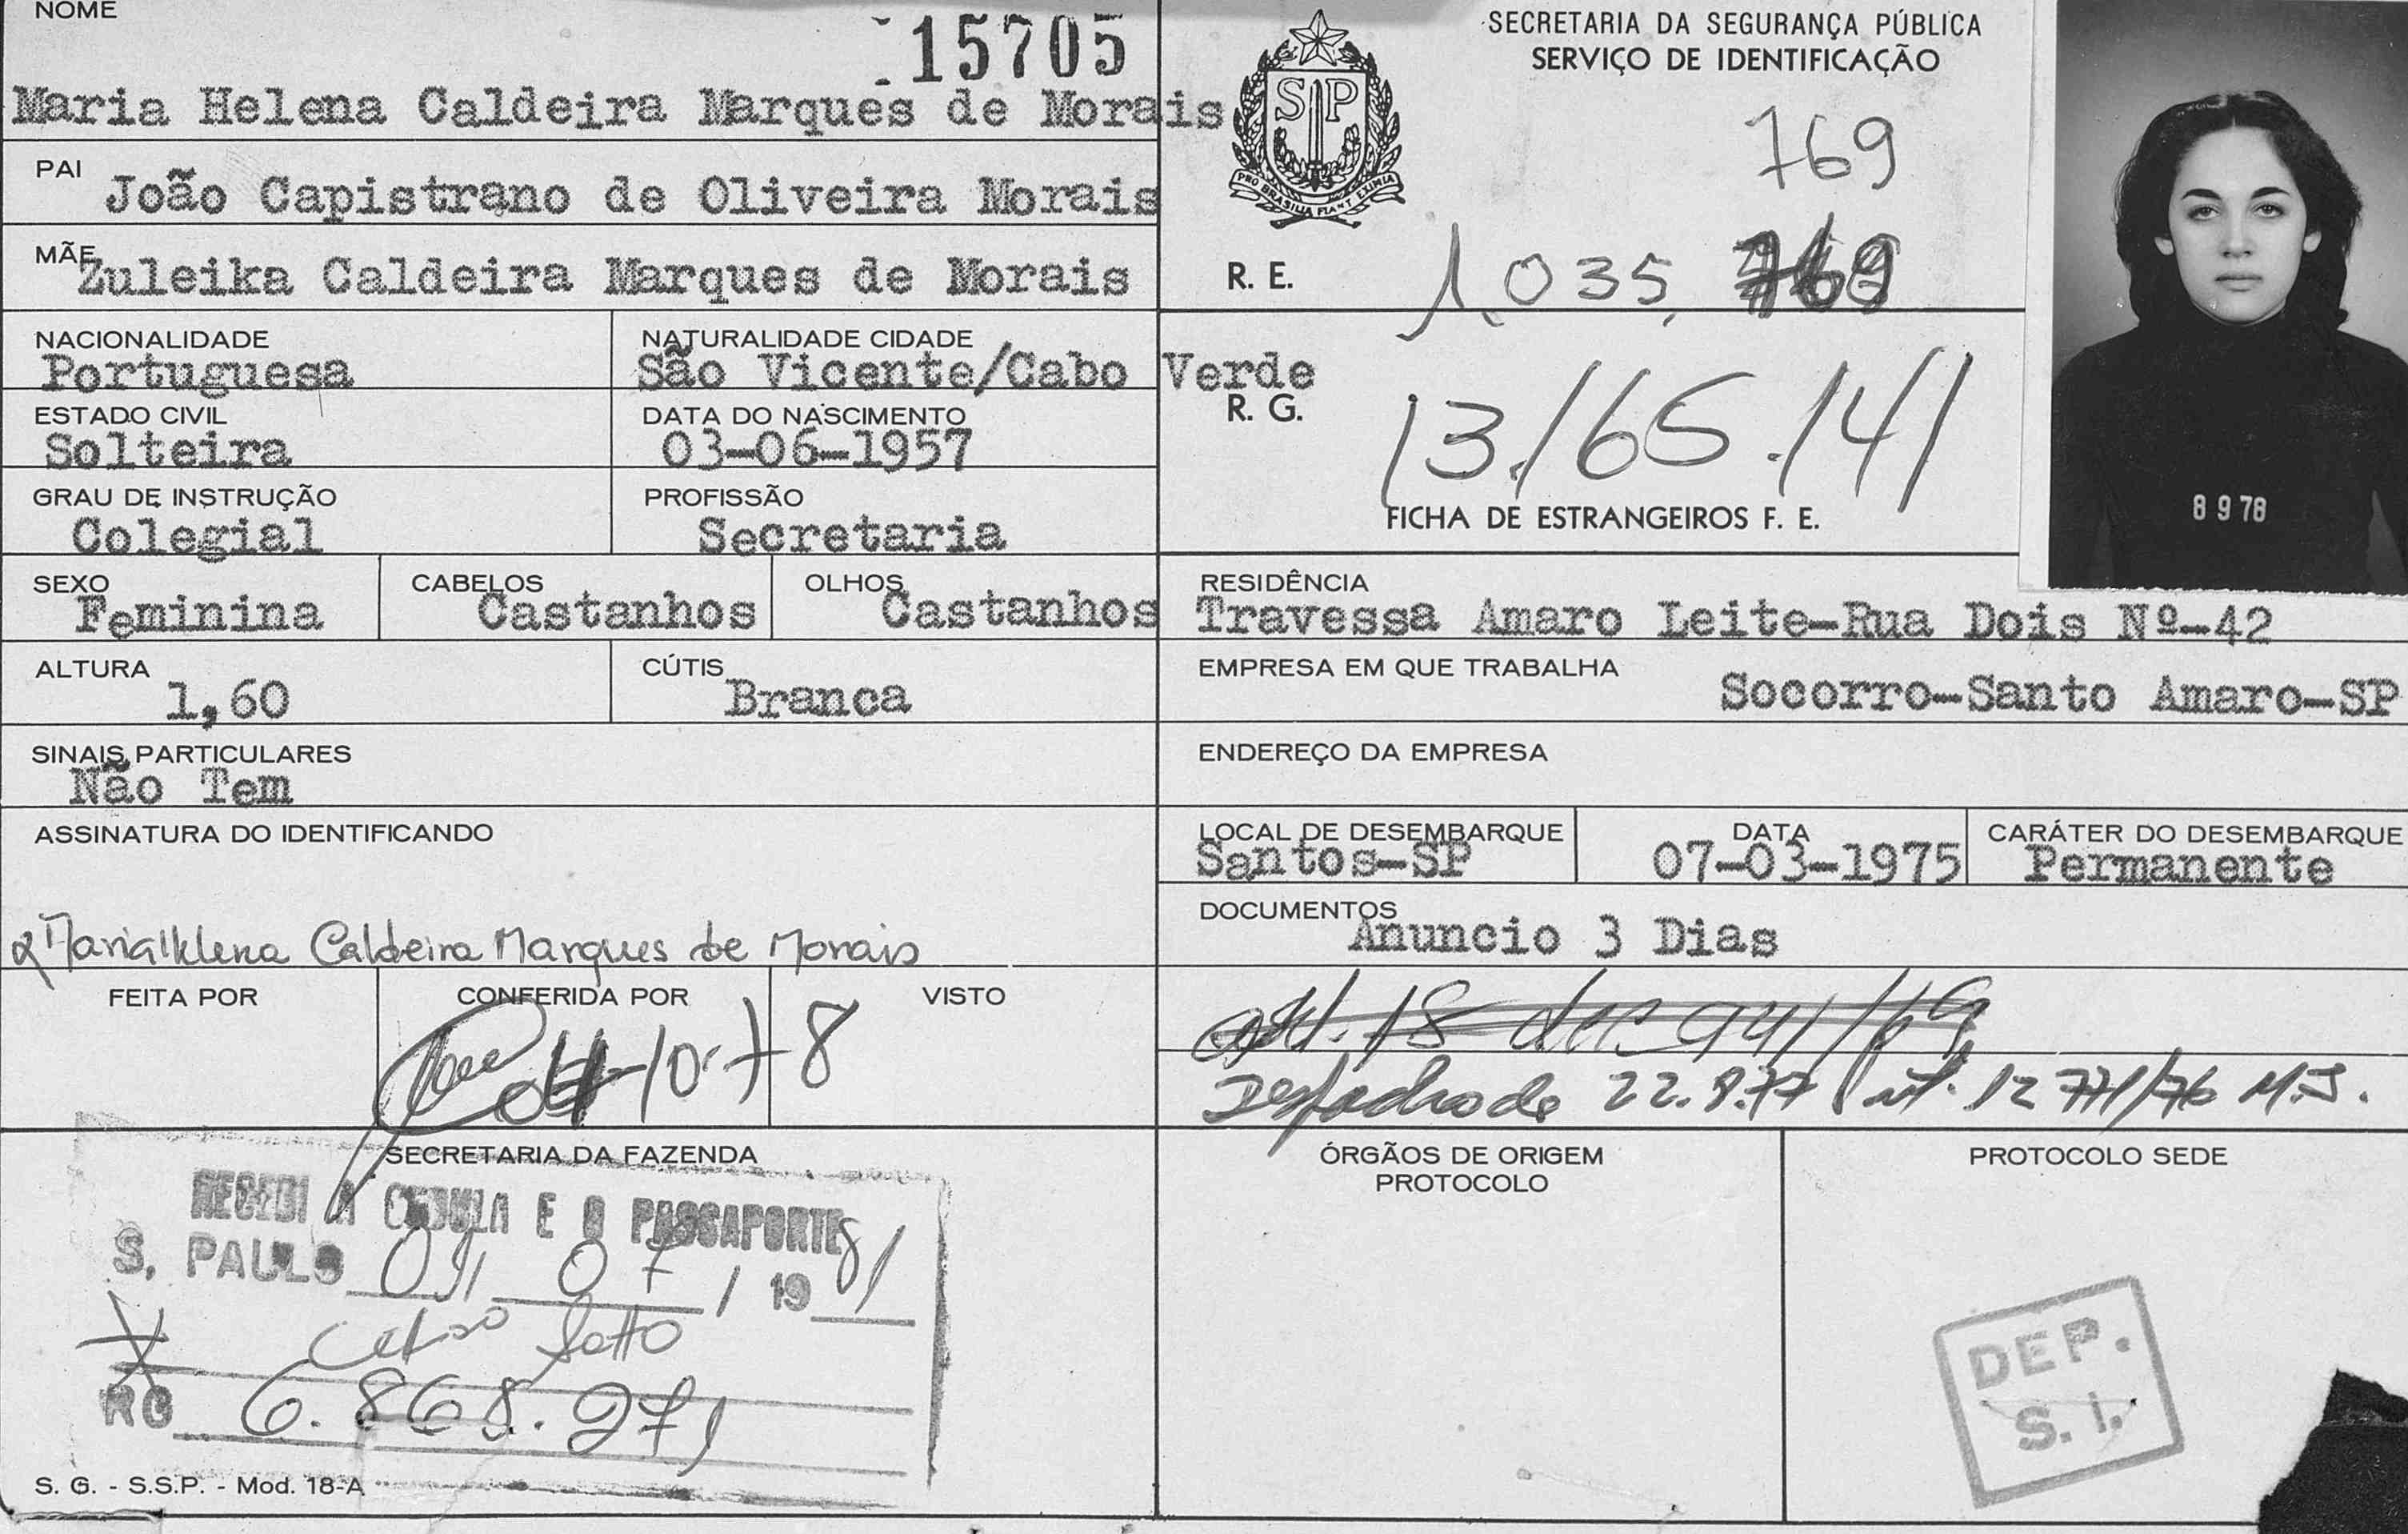 NOME
15705
Maria Helena Caldeira Marques de Morais
PAI
João Capistrano de Oliveira Morais
MÃE
Zuleika Caldeira Marques de Morais
NACIONALIDADE
Portuguesa
NATURALIDADE CIDADE
São Vicente/Cabo Verde
ESTADO CIVIL
Solteira
DATA DO NASCIMENTO
03-06-1957
GRAU DE INSTRUÇÃO
Colegial
PROFISSÃO
Secretaria
SEXO
Feminina
CABELOS
Castanhos
OLHOS
Castanhos
ALTURA
1,60
CÚTIS
Branca
SINAIS PARTICULARES
Não Tem
ASSINATURA DO IDENTIFICANDO
Maria Helena Caldeira Marques de Morais
FEITA POR
CONFERIDA POR
VISTO
10.78
SECRETARIA DA FAZENDA
RECEBI A CEDULA E O PASSAPORTE
S. PAULO 09/ 07 / 1981
RG 6.868.271
S. G. - S.S.P. - Mod. 18-A
SECRETARIA DA SEGURANÇA PÚBLICA
SERVIÇO DE IDENTIFICAÇÃO
SP
PRO BRASILIA FIANT EXIMIA
769
R. E. 1.035.
R. G. 13.165.141
FICHA DE ESTRANGEIROS F. E.
8 9 78
RESIDÊNCIA
Travessa Amaro Leite-Rua Dois Nº-42
EMPRESA EM QUE TRABALHA
Socorro-Santo Amaro-SP
ENDEREÇO DA EMPRESA
LOCAL DE DESEMBARQUE
Santos-SP
DATA
07-03-1975
CARÁTER DO DESEMBARQUE
Permanente
DOCUMENTOS
Anuncio 3 Dias
art. 18 dec 941/69
Despacho de 22.8.77 12 771/76 M.J.
ÓRGÃOS DE ORIGEM
PROTOCOLO
PROTOCOLO SEDE
DEP.
S. I.